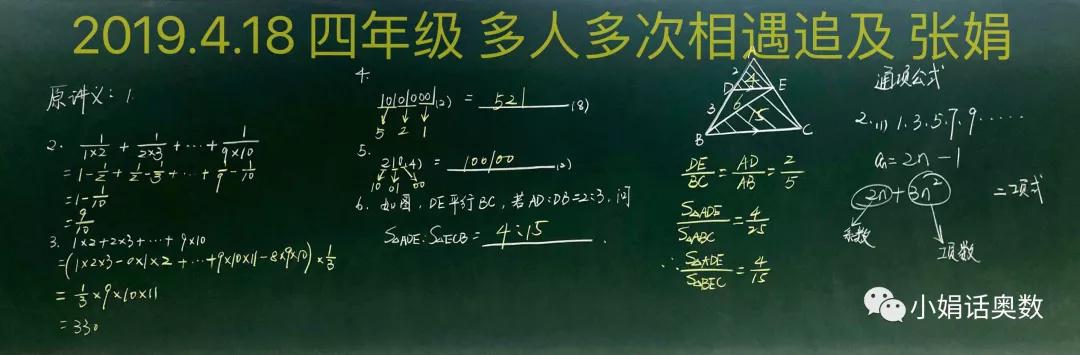 2019.4.18 四年级 多人多次相遇追及 张娟
原讲义: 1.
2. 1/1×2 + 1/2×3 + ··· + 1/9×10
= 1 - 1/2 + 1/2 - 1/3 + ··· + 1/9 - 1/10
= 1 - 1/10
= 9/10
3. 1×2 + 2×3 + ··· + 9×10
= (1×2×3 - 0×1×2 + ··· + 9×10×11 - 8×9×10) × 1/3
= 1/3 × 9×10×11
= 330
4.
10101000 1(2) = 521 (8)
5 2 1
5.
210(4) = 100100 (2)
10 01 00
6. 如图, DE平行BC, 若AD:DB=2:3, 问
S△ADE : S△ECB = 4:15.
A
2 4
D E
3 6
15
B C
DE/BC = AD/AB = 2/5
S△ADE/S△ABC = 4/25
∴ S△ADE/S△BEC = 4/15
通项公式
2. (1) 1.3.5.7.9 ······
an = 2n - 1
2n + 3n² 二项式
系数
项数
小娟话奥数